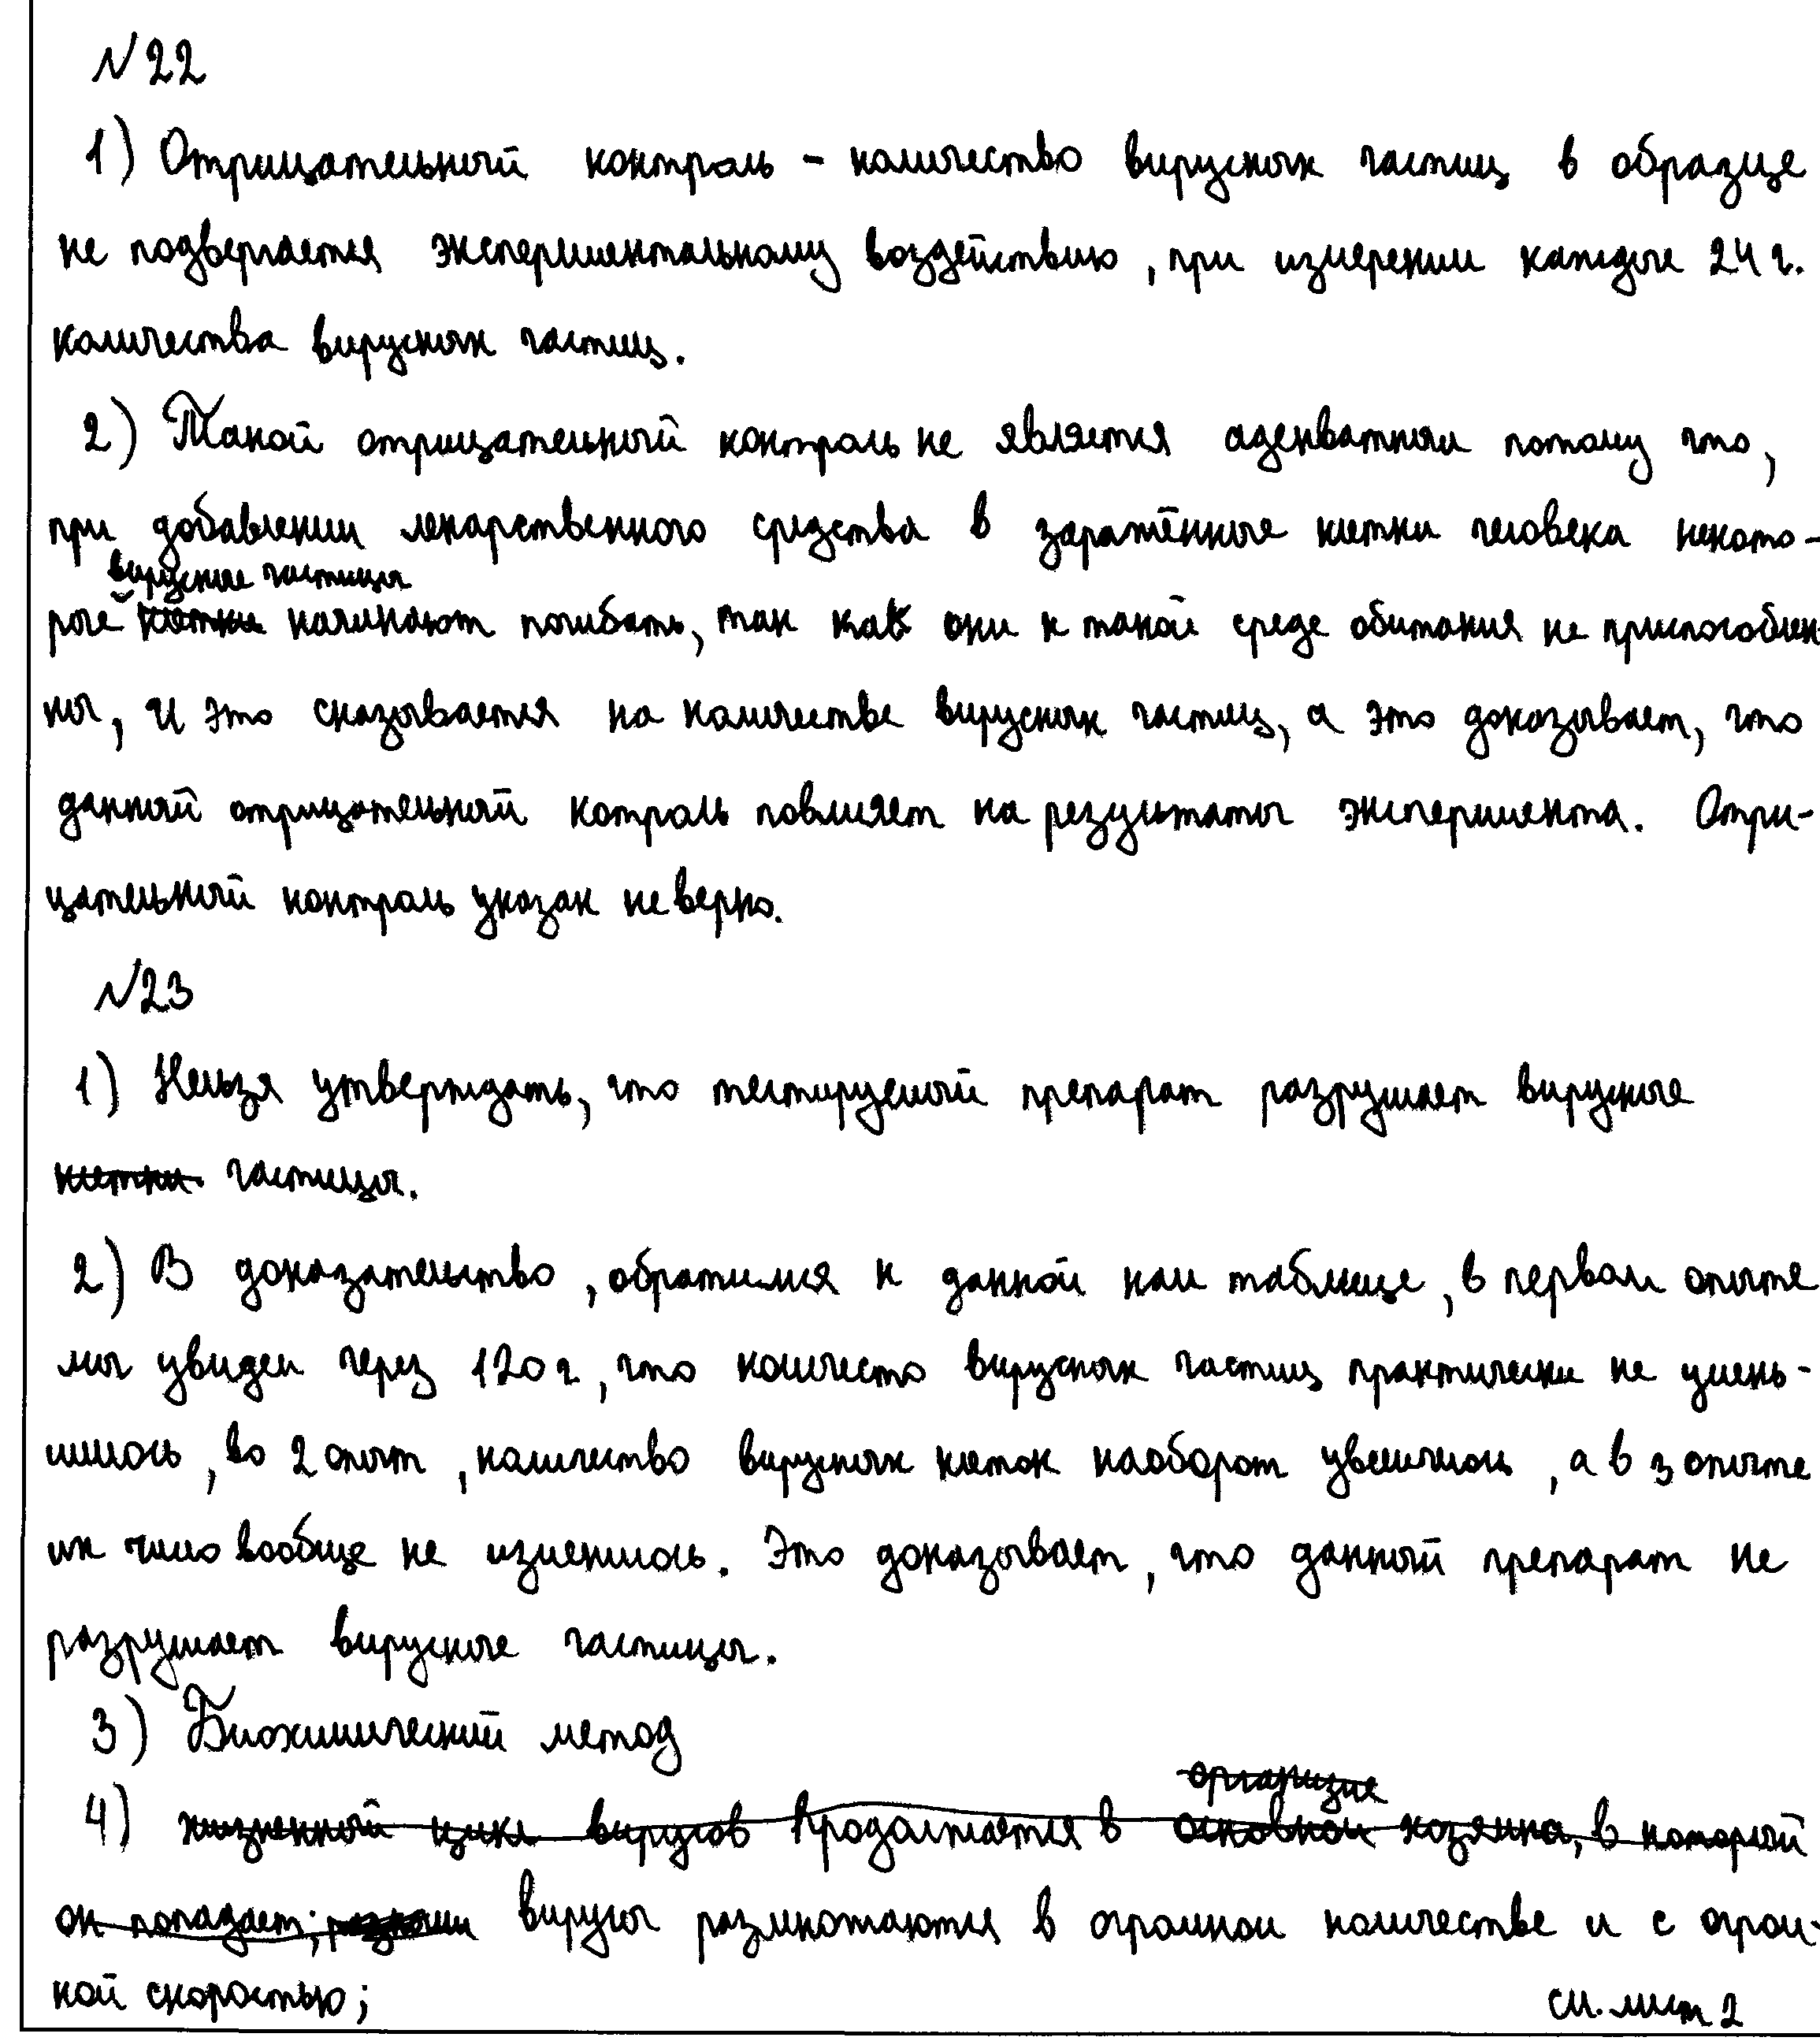 №22
1) Отрицательный контроль - количество вирусных частиц в образце
не подвергается экспериментальному воздействию, при измерении каждые 24 ч.
количества вирусных частиц.
2) Такой отрицательный контроль не является адекватным потому что,
при добавлении лекарственного средства в заражённые клетки человека некото-
вирусные частицы
рые клетки начинают погибать, так как они к такой среде обитания не приспособлен
ны, и это сказывается на количестве вирусных частиц, а это доказывает, что
данный отрицательный котроль повлияет на результаты эксперимента. Отри-
цательный контроль указан неверно.
№23
1) Нельзя утверждать, что тестируемый препарат разрушает вирусные
клетки частицы.
2) В доказательство, обратимся к данной нам таблице, в первом опыте
мы увидел через 120 ч, что количесто вирусных частиц практически не умень-
шилось, во 2 опыт, количество вирусных клеток наоборот увеличилось, а в 3 опыте
их число вообще не изменилось. Это доказывает, что данный препарат не
разрушает вирусные частицы.
3) Биохимический метод
организме
4) жизненный цикл вирусов продолжается в основном хозяина, в который
он попадает; вирусы размножаются в огромном количестве и с огром-
ной скоростью;
см. лист 2